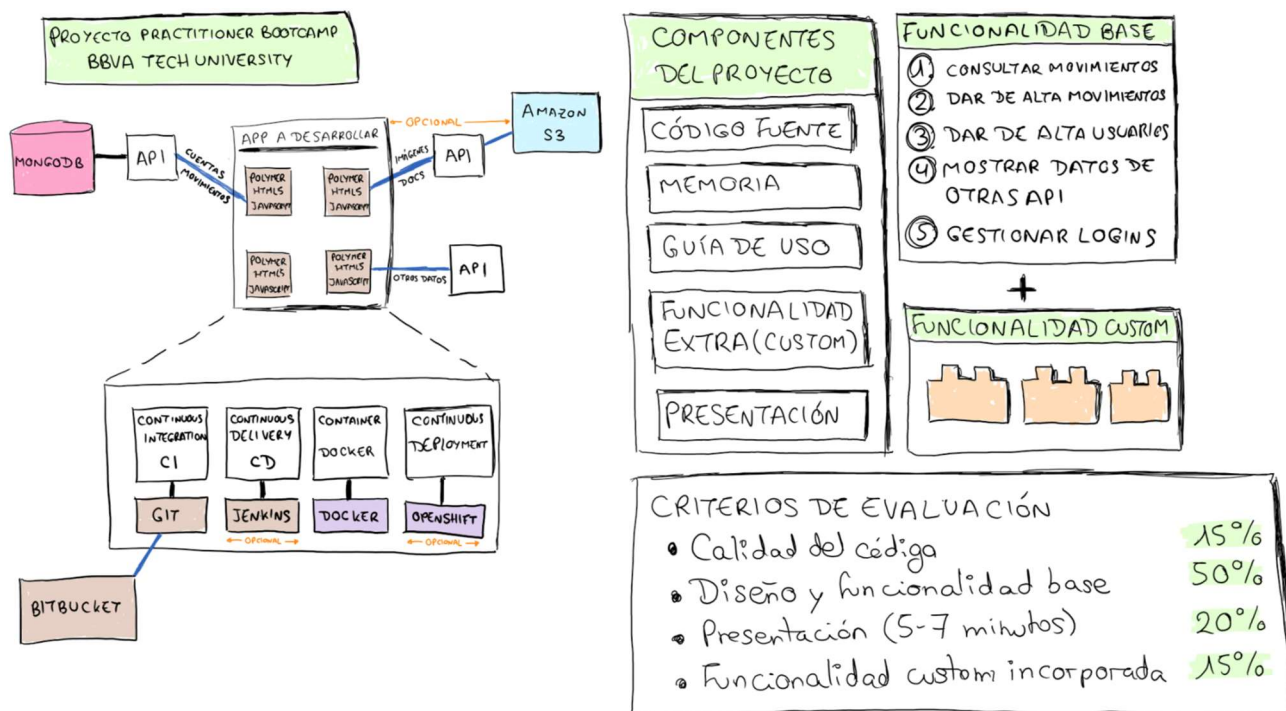 PROYECTO PRACTITIONER BOOTCAMP
BBVA TECH UNIVERSITY
MONGODB
API
CUENTAS
MOVIMIENTOS
APP A DESARROLLAR
POLYMER
HTML5
JAVASCRIPT
POLYMER
HTML5
JAVASCRIPT
POLYMER
HTML5
JAVASCRIPT
POLYMER
HTML5
JAVASCRIPT
OPCIONAL
IMÁGENES
DOCS
API
AMAZON
S3
OTROS DATOS
API
CONTINUOUS
INTEGRATION
CI
CONTINUOUS
DELIVERY
CD
CONTAINER
DOCKER
CONTINUOUS
DEPLOYMENT
GIT
JENKINS
DOCKER
OPENSHIFT
OPCIONAL
OPCIONAL
BITBUCKET
COMPONENTES
DEL PROYECTO
CÓDIGO FUENTE
MEMORIA
GUÍA DE USO
FUNCIONALIDAD
EXTRA (CUSTOM)
PRESENTACIÓN
FUNCIONALIDAD BASE
1 CONSULTAR MOVIMIENTOS
2 DAR DE ALTA MOVIMIENTOS
3 DAR DE ALTA USUARIOS
4 MOSTRAR DATOS DE
OTRAS API
5 GESTIONAR LOGINS
+
FUNCIONALIDAD CUSTOM
CRITERIOS DE EVALUACIÓN
• Calidad del código 15%
• Diseño y funcionalidad base 50%
• Presentación (5-7 minutos) 20%
• Funcionalidad custom incorporada 15%